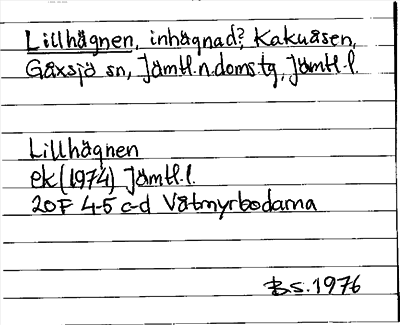 Lillhägnen, inhägnad? Kakuåsen,
Gåxsjö sn, Jämtl.n.doms.tg, Jämtl.l.
Lillhägnen
ek (1974) Jämtl.l.
20F 4-5 c-d Våtmyrbodarna
B.S. 1976